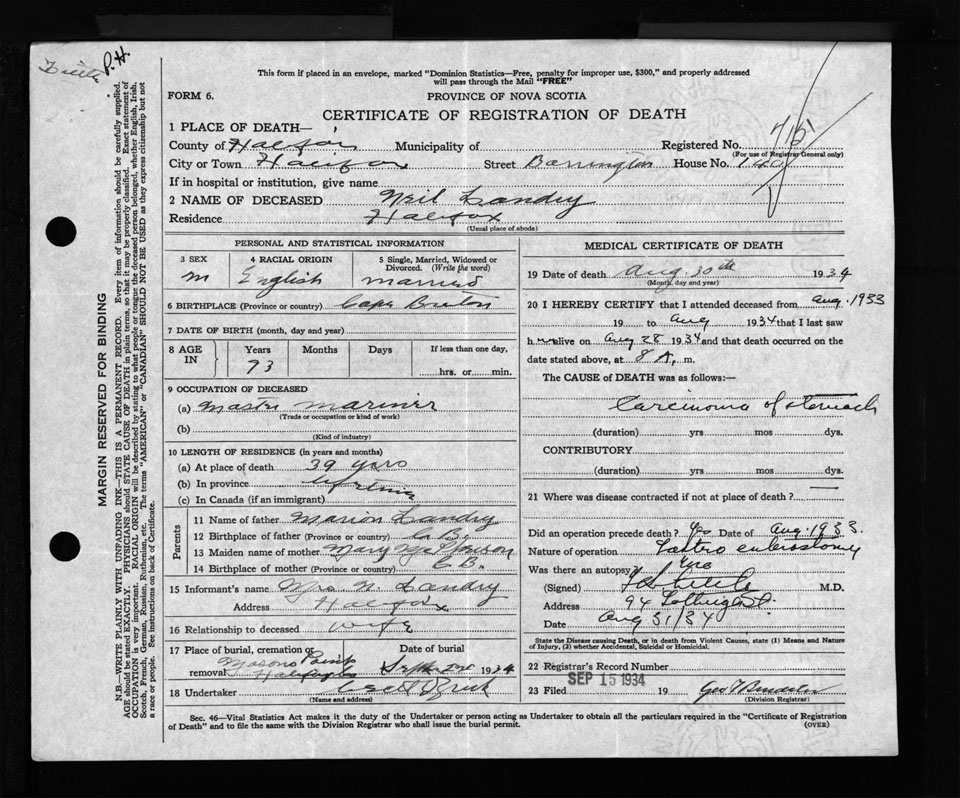 P. H.
This form if placed in an envelope, marked "Dominion Statistics—Free, penalty for improper use, $300," and properly addressed
will pass through the Mail "FREE"
FORM 6.
PROVINCE OF NOVA SCOTIA
CERTIFICATE OF REGISTRATION OF DEATH
1 PLACE OF DEATH—
County of Halifax Municipality of Registered No.
(For use of Registrar General only)
City or Town Halifax Street Barrington House No.
If in hospital or institution, give name
2 NAME OF DECEASED Neil Landry
Residence Halifax
(Usual place of abode)
PERSONAL AND STATISTICAL INFORMATION
3 SEX
M
4 RACIAL ORIGIN
English
5 Single, Married, Widowed or
Divorced. (Write the word)
married
6 BIRTHPLACE (Province or country) Cape Breton
7 DATE OF BIRTH (month, day and year)
8 AGE
IN
Years Months Days If less than one day,
73 hrs. or min.
9 OCCUPATION OF DECEASED
(a) Master Mariner
(Trade or occupation or kind of work)
(b)
(Kind of industry)
10 LENGTH OF RESIDENCE (in years and months)
(a) At place of death 39 years
(b) In province
(c) In Canada (if an immigrant)
Parents
11 Name of father Marion Landry
12 Birthplace of father (Province or country) C. B.
13 Maiden name of mother Mary
14 Birthplace of mother (Province or country) C. B.
15 Informant's name Mrs N. Landry
Address Halifax
16 Relationship to deceased wife
17 Place of burial, cremation or
removal
Date of burial
Sept 2nd 1934
18 Undertaker
(Name and address)
MEDICAL CERTIFICATE OF DEATH
19 Date of death Aug. 30th 1934
(Month, day and year)
20 I HEREBY CERTIFY that I attended deceased from Aug. 1933
19 to Aug 1934 that I last saw
him alive on Aug 28 1934 and that death occurred on the
date stated above, at 8 A. m.
The CAUSE of DEATH was as follows:—
Carcinoma of stomach
(duration) yrs mos dys.
CONTRIBUTORY
(duration) yrs mos dys.
21 Where was disease contracted if not at place of death?
Did an operation precede death? Yes Date of Aug. 1933.
Nature of operation Gastro enterostomy
Was there an autopsy? no
(Signed) M.D.
Address 94
Date Aug 31/34
State the Disease causing Death, or in death from Violent Causes, state (1) Means and Nature
of Injury, (2) whether Accidental, Suicidal or Homicidal.
22 Registrar's Record Number
23 Filed SEP 15 1934 19
(Division Registrar)
Sec. 46—Vital Statistics Act makes it the duty of the Undertaker or person acting as Undertaker to obtain all the particulars required in the "Certificate of Registration
of Death" and to file the same with the Division Registrar who shall issue the burial permit.
(OVER)
MARGIN RESERVED FOR BINDING
N.B.—WRITE PLAINLY WITH UNFADING INK—THIS IS A PERMANENT RECORD. Every item of information should be carefully supplied.
AGE should be stated EXACTLY. PHYSICIANS should STATE CAUSE OF DEATH in plain terms, so that it may be properly classified. Exact statement of
OCCUPATION is very important. RACIAL ORIGIN will be described by stating to what people or tongue the deceased person belonged, whether English, Irish,
Scotch, French, German, Russian, Ruthenian, etc. The terms "AMERICAN" or "CANADIAN" SHOULD NOT BE USED as they express citizenship but not
a race or people. See instructions on back of Certificate.